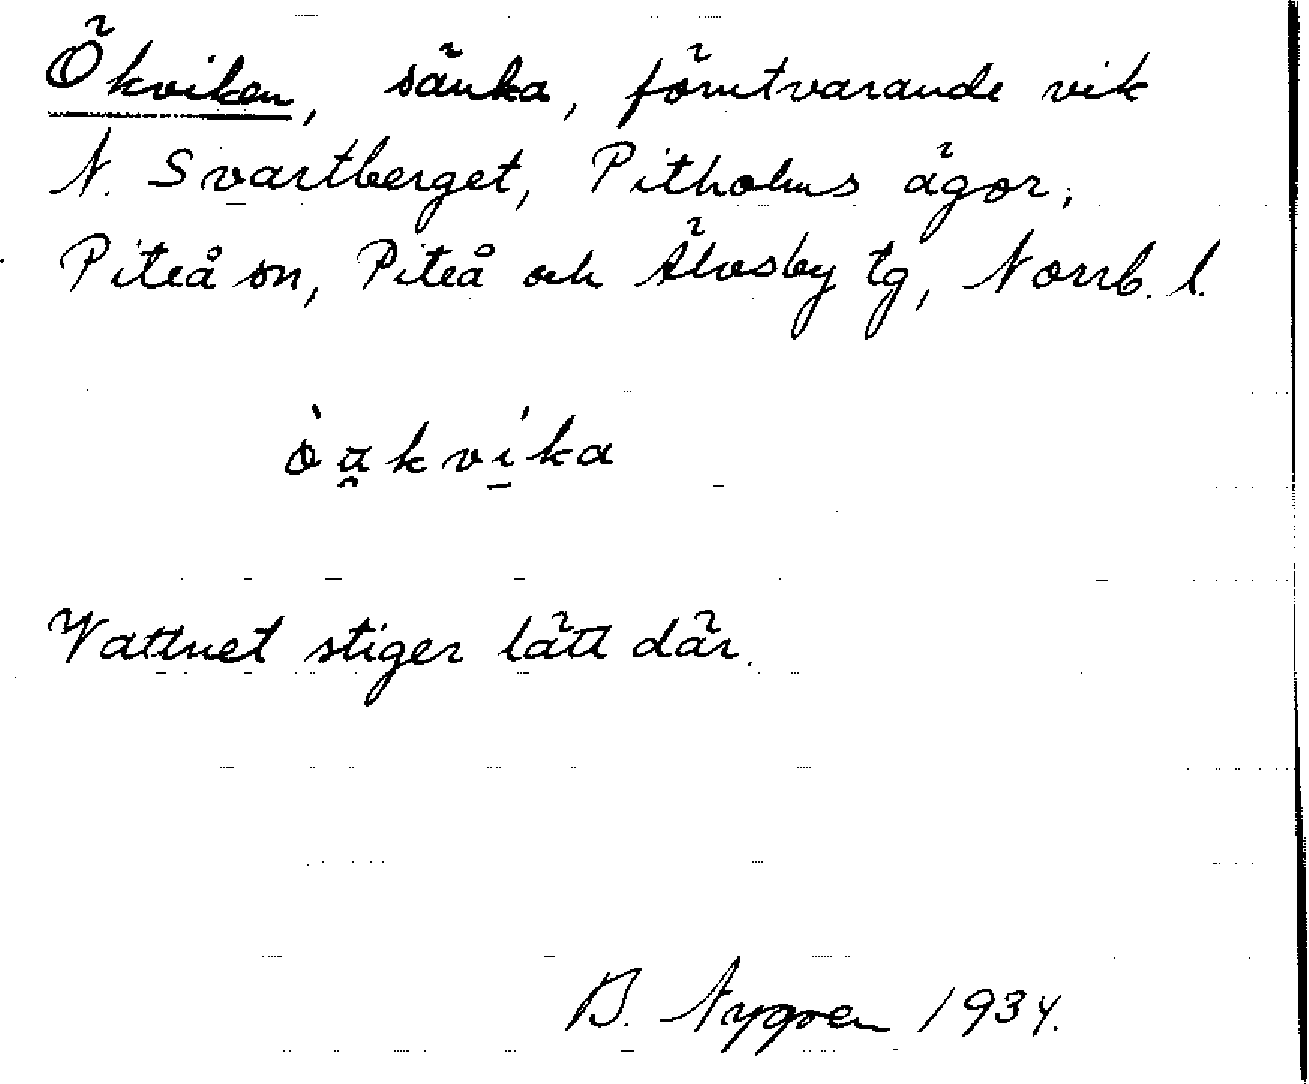 Ökviken, sänka, förutvarande vik
N. Svartberget, Pitholms ägor,
Piteå sn, Piteå och Älvsby tg, Norrb. l.
Vattnet stiger lätt där.
B. Nygren 1934.